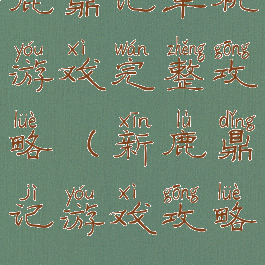 鹿鼎记单机
yóu xì wán zhěng gōng
游戏完整攻
lüè xīn lù dǐng
略（新鹿鼎
jì yóu xì gōng lüè
记游戏攻略